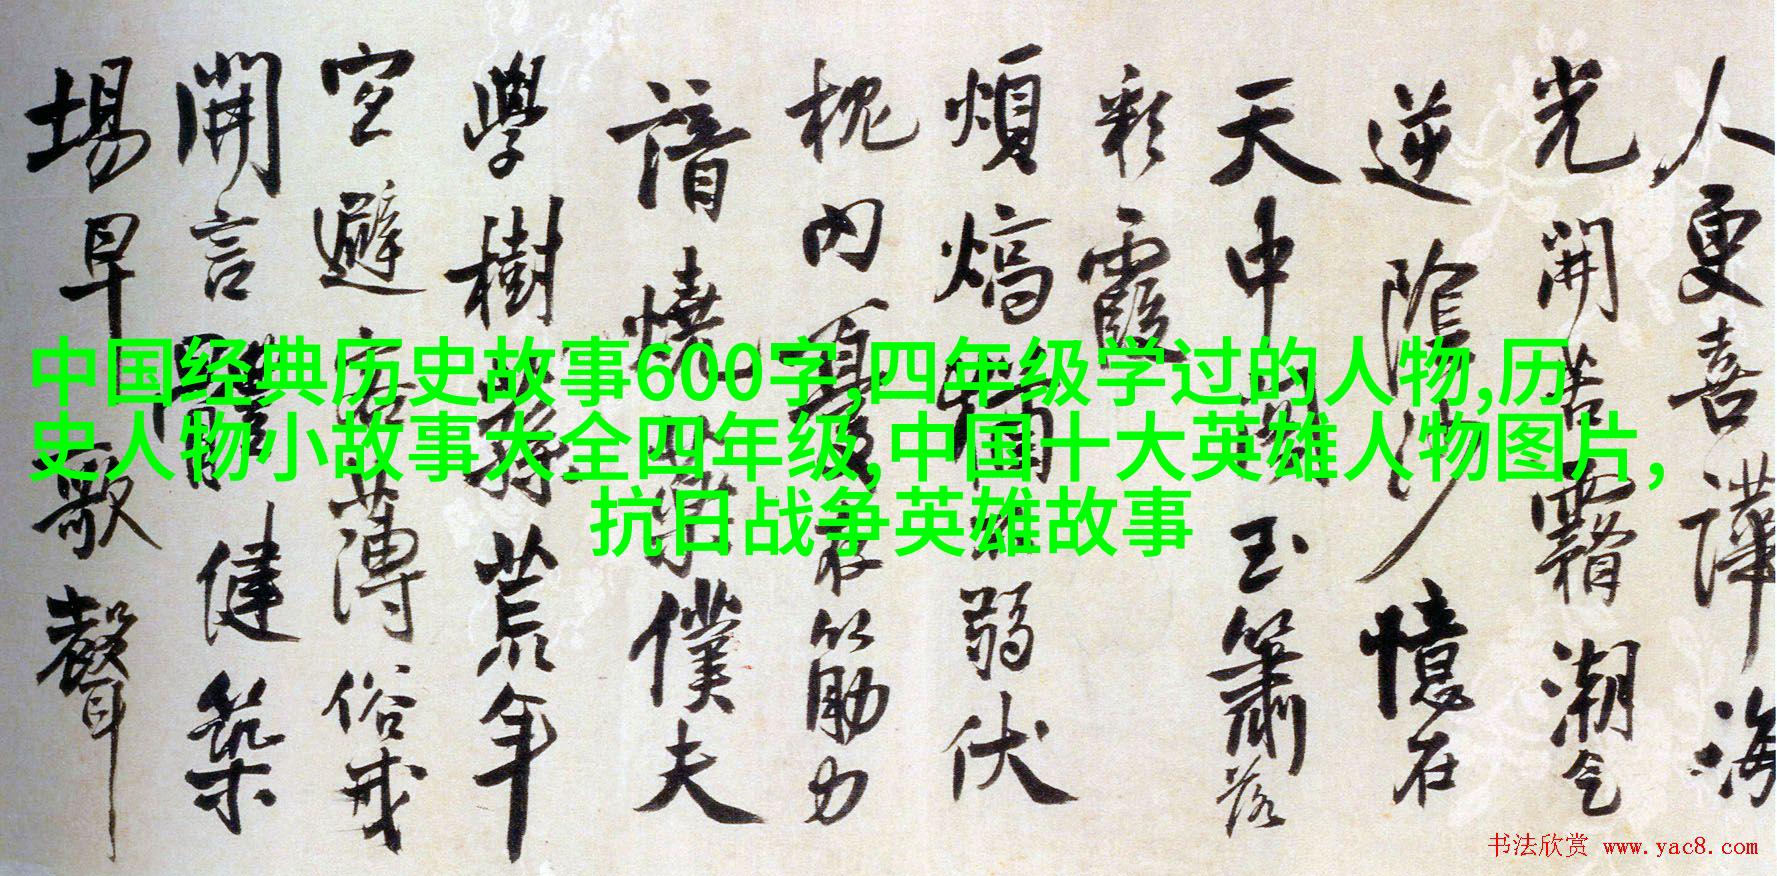 中国经典历史故事600字,四年级学过的人物,历
史人物小故事大全四年级,中国十大英雄人物图片,
抗日战争英雄故事
人更喜譁海
光開霧潮
逆陰沙憶在
天中玉簫落
彩霞
煩熇弱伏
枕内筋力
諳僕夫
學樹縣荒年
空避客薄俗戒
開言體健築
場早歌聲
书法欣赏 www.yac8.com